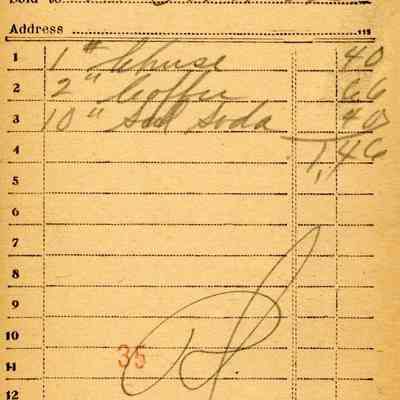 Sold to
Address
1 1 # Cheese 40
2 2 " Coffee 66
3 10 " Sal Soda 40
4 1,46
5
6
7
8
9
10
11 35
12